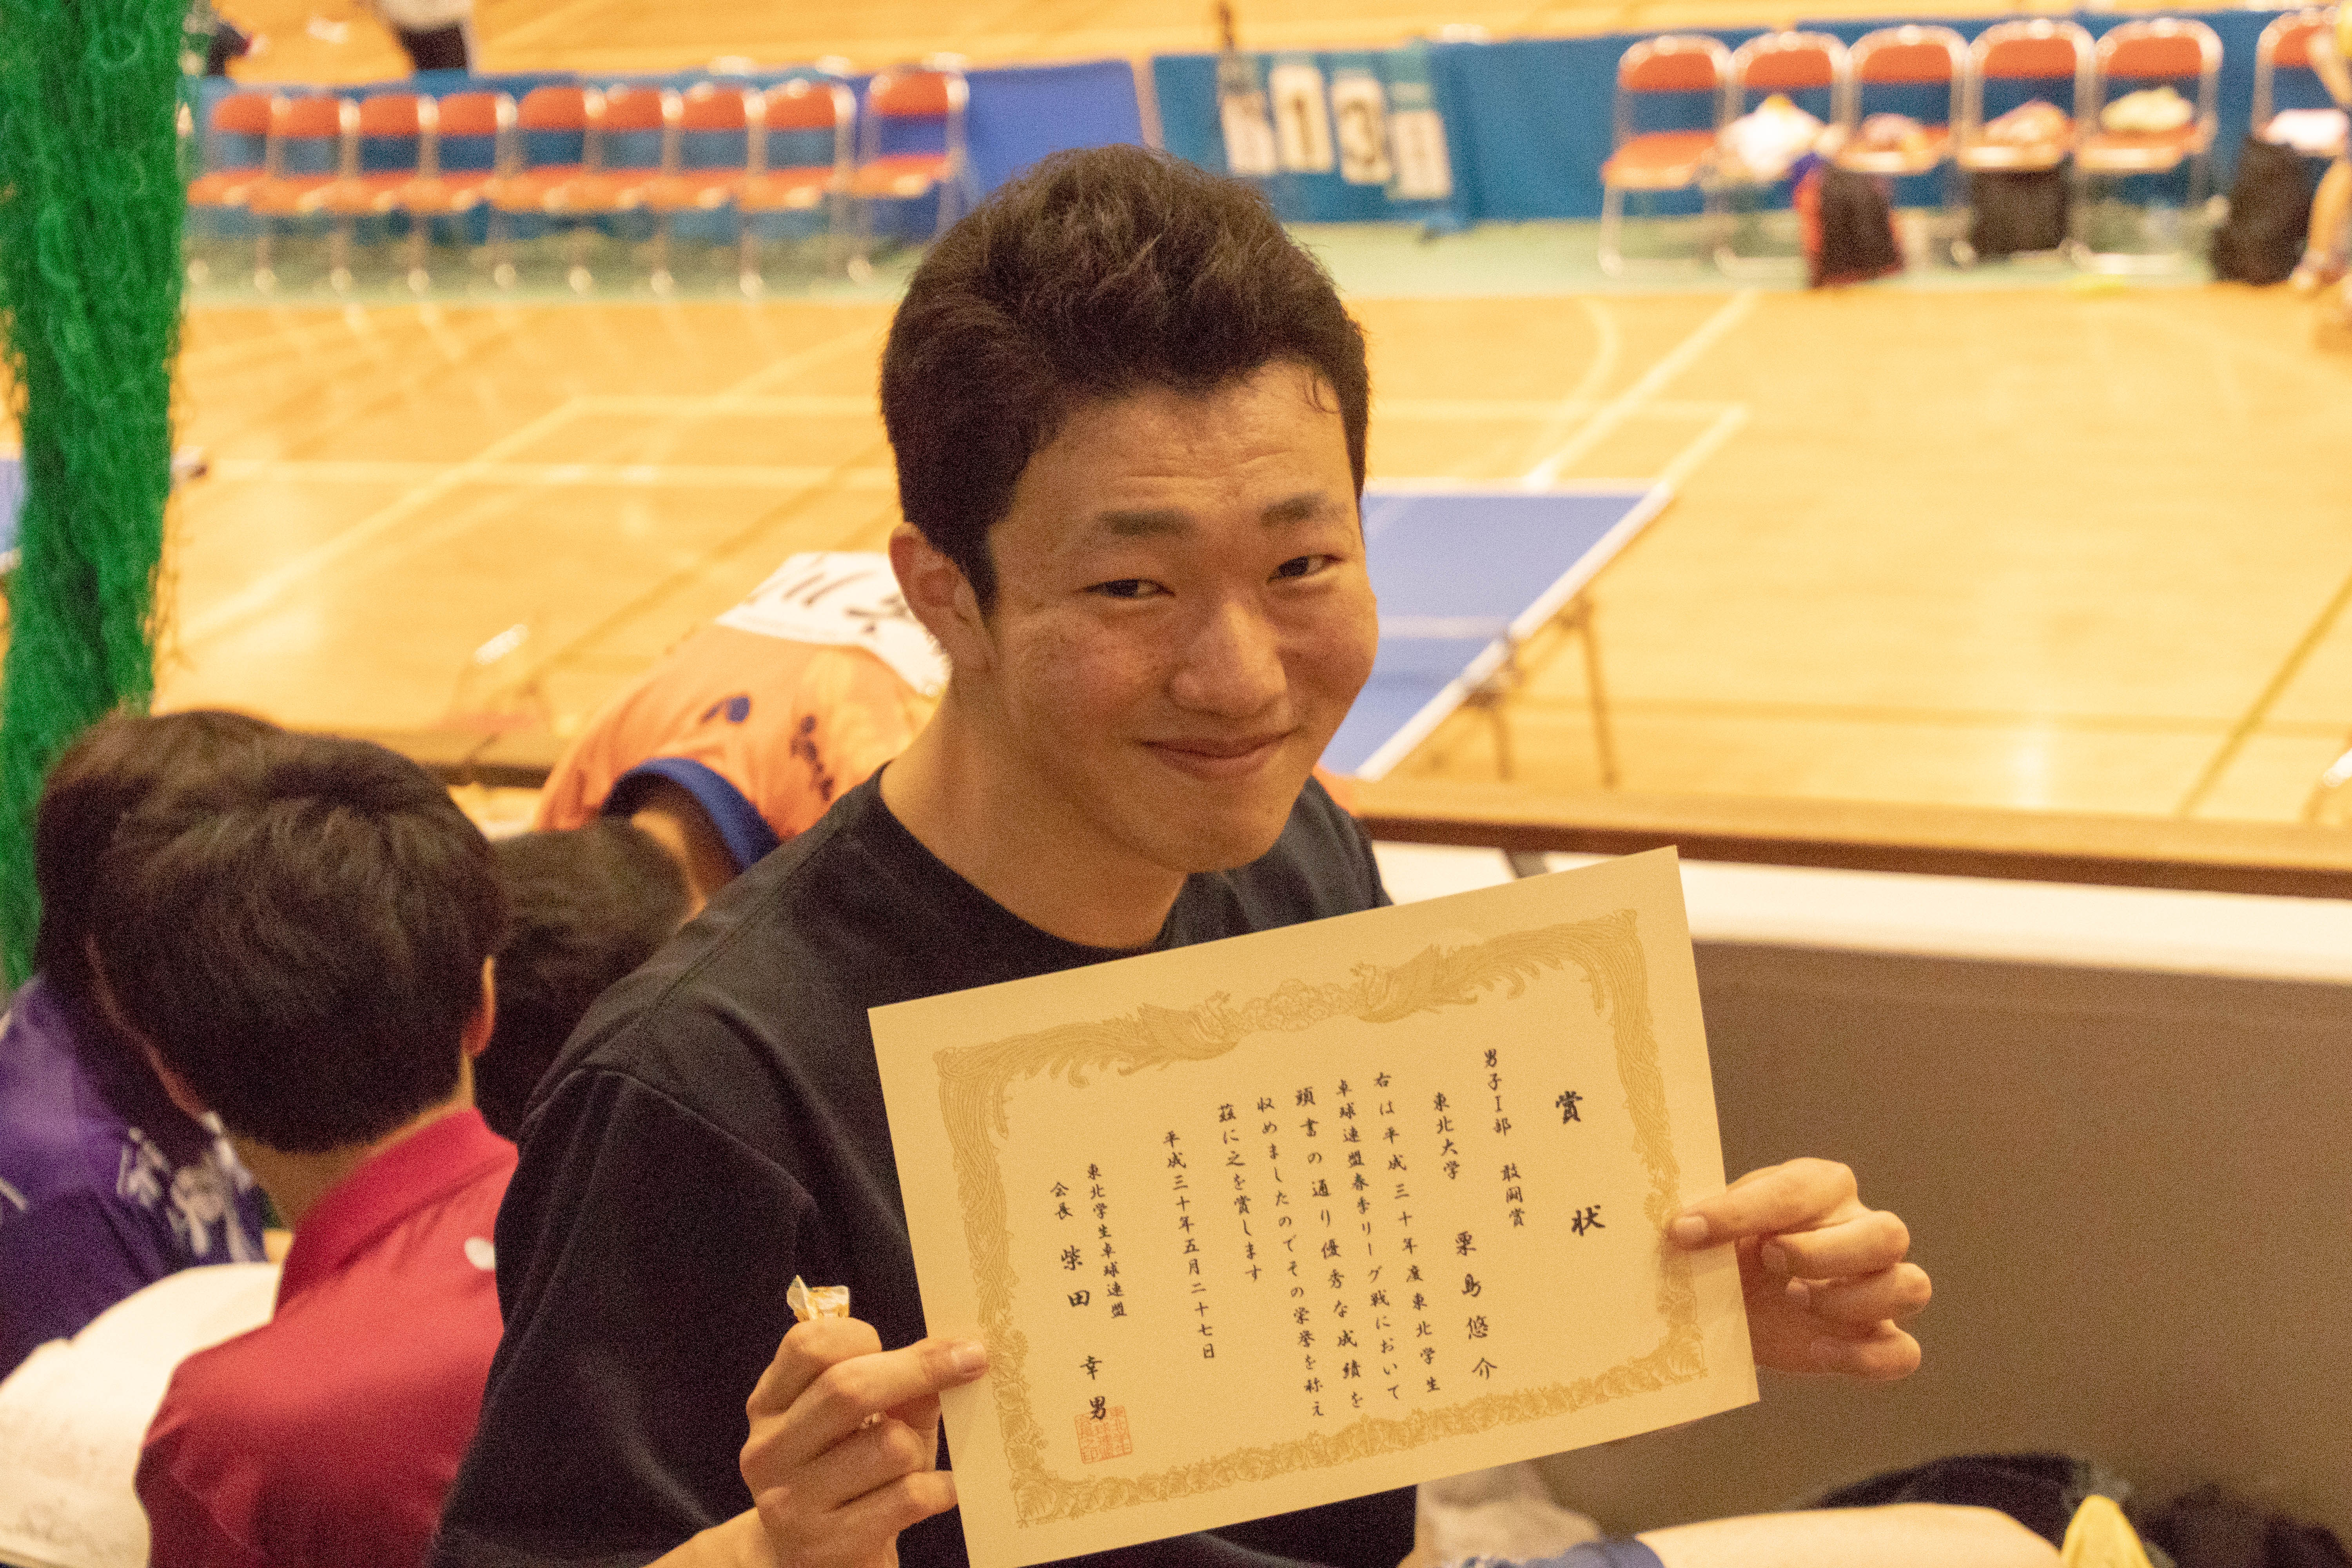 賞状
男子Ⅰ部 敢闘賞
東北大学 栗島悠介
右は平成三十年度東北学生
卓球連盟春季リーグ戦において
頭書の通り優秀な成績を
収めましたのでその栄誉を称え
茲に之を賞します
平成三十年五月二十七日
東北学生卓球連盟
会長 柴田幸男
1 3